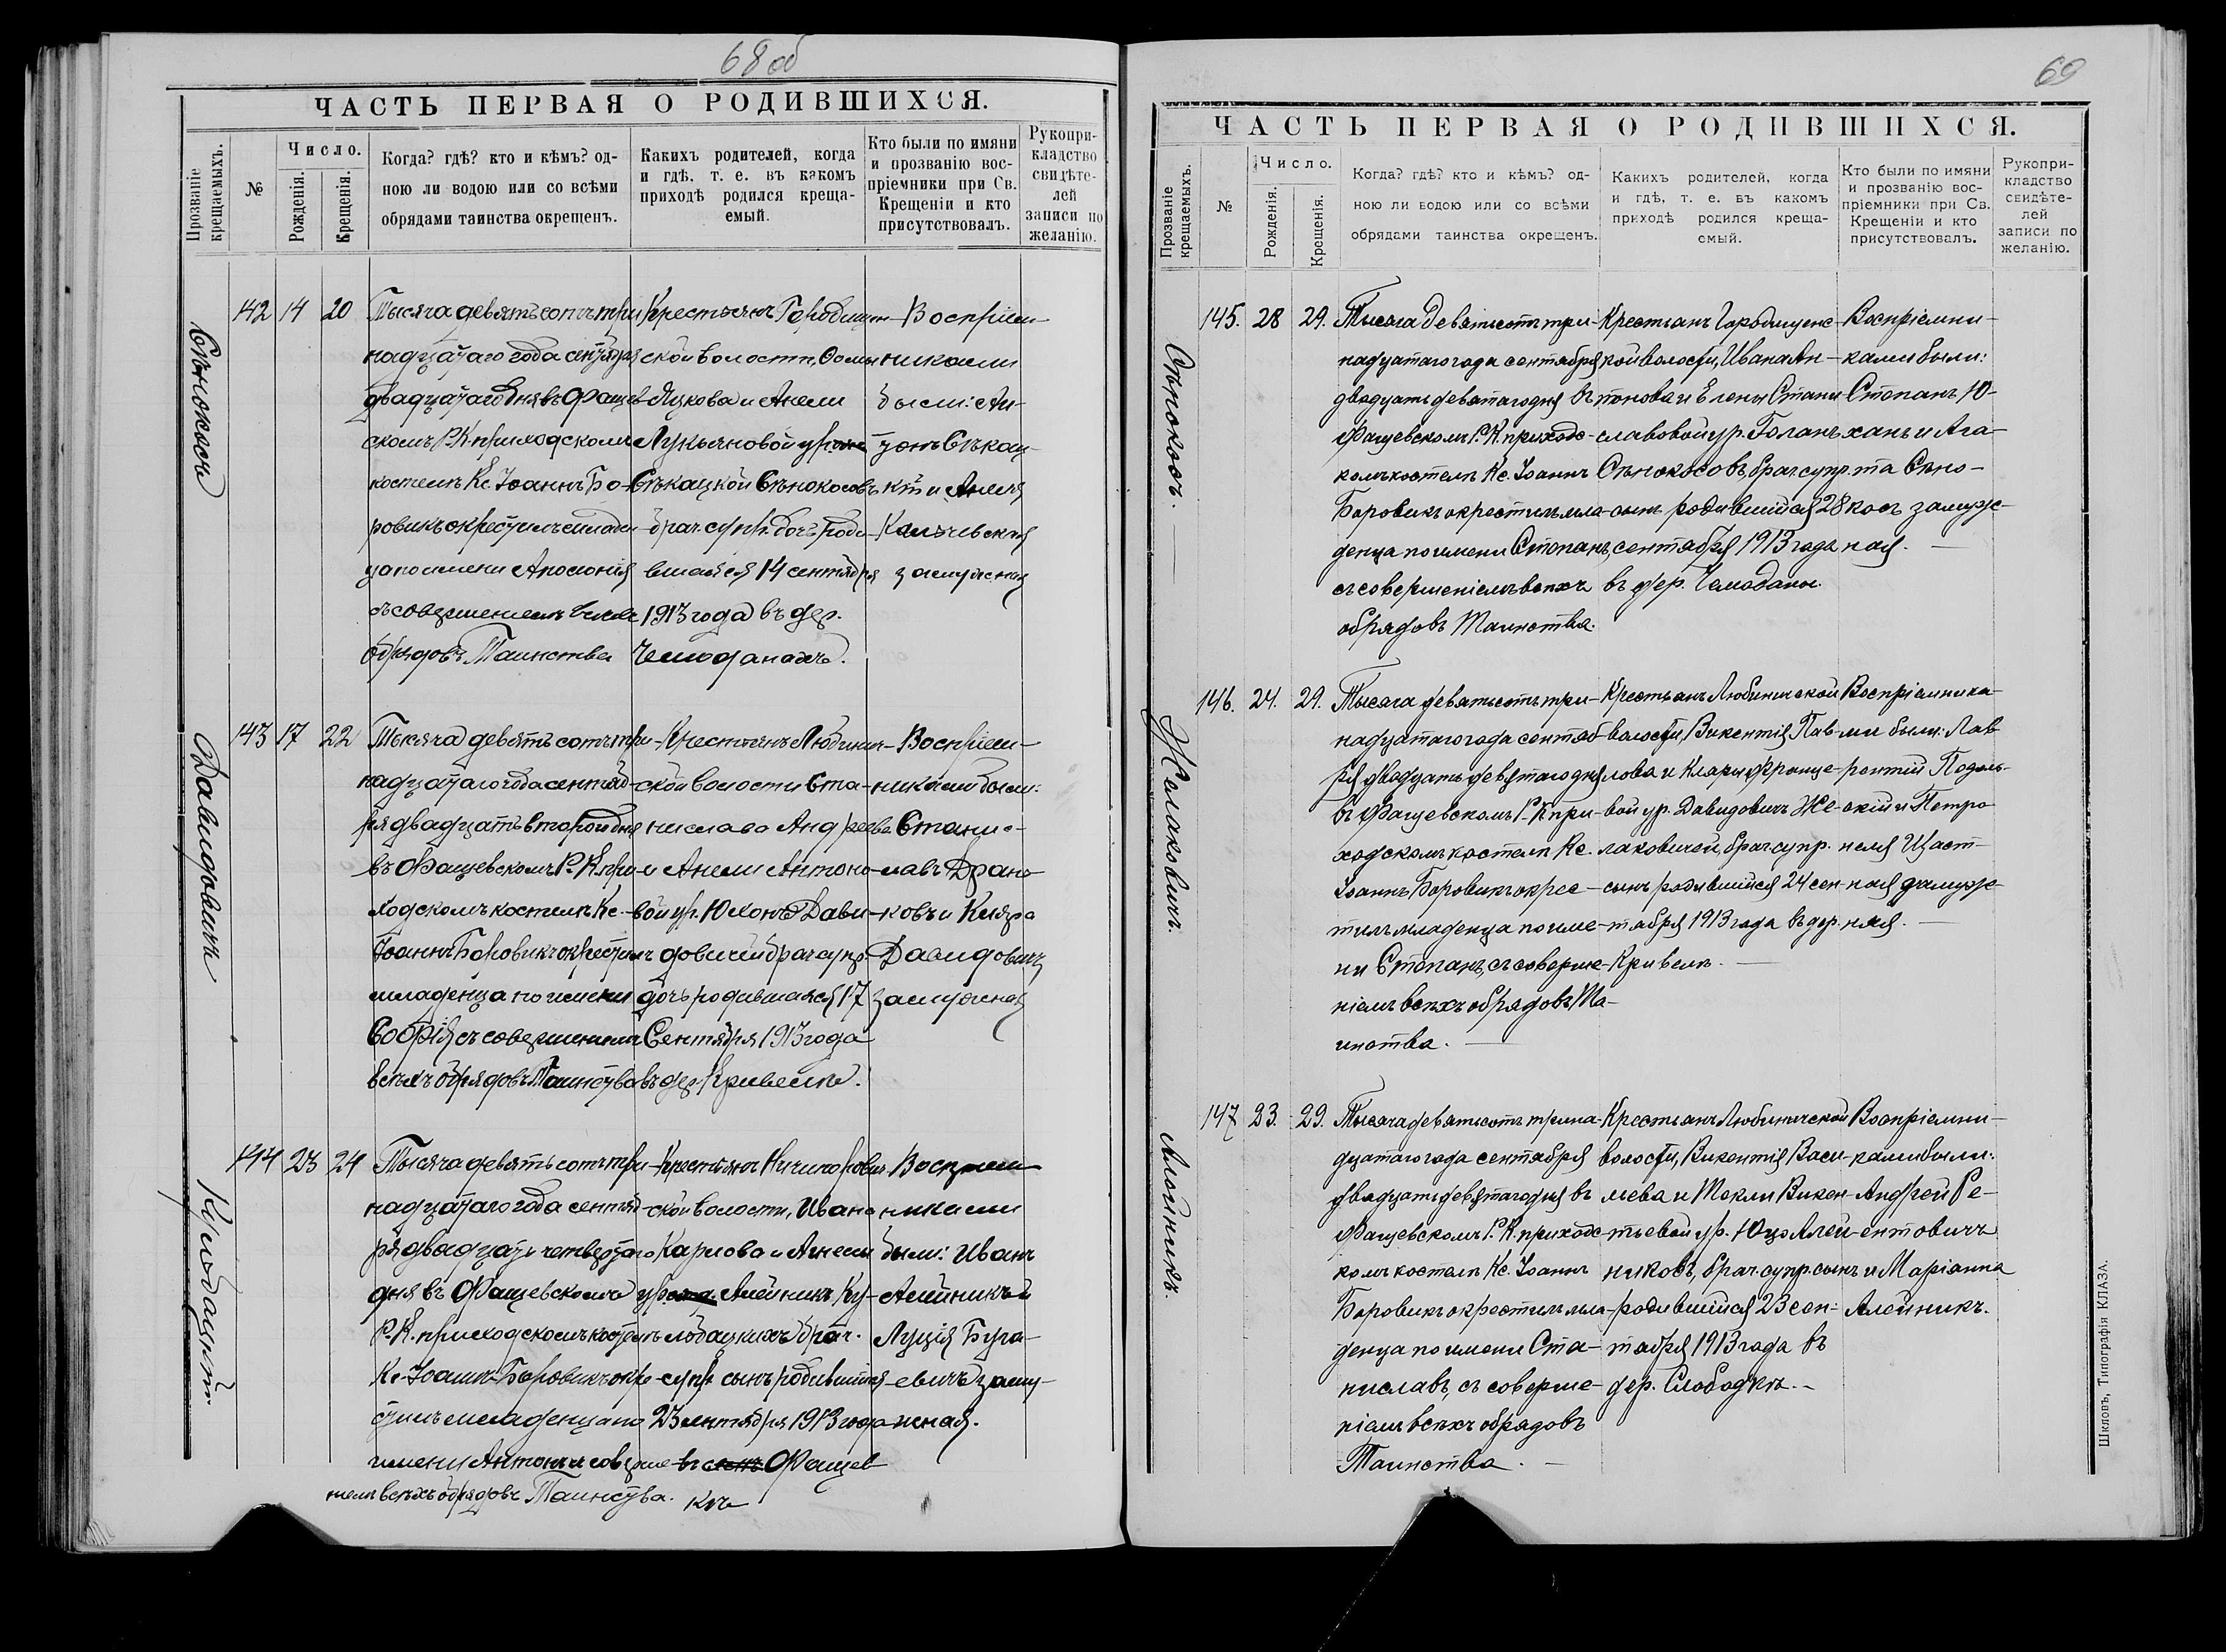 68 об
ЧАСТЬ ПЕРВАЯ О РОДИВШИХСЯ.
Прозваніе
крещаемыхъ.
№
Число.
Рожденія.
Крещенія.
Когда? гдѣ? кто и кѣмъ? од-
ною ли водою или со всѣми
обрядами таинства окрещенъ.
Какихъ родителей, когда
и гдѣ, т. е. въ какомъ
приходѣ родился креща-
емый.
Кто были по имяни
и прозванію вос-
пріемники при Св.
Крещеніи и кто
присутствовалъ.
Рукопри-
кладство
свидѣте-
лей
записи по
желанію.
Сѣнокосъ
142 14 20
Тысяча девятьсотъ три
надцатаго года сентября
двадцатаго дня въ Фащев-
скомъ Р. К. приходскомъ
костелѣ Кс. Іоаннъ Бо-
ровикъ окрестилъ младен
ца по имени Аполонія
съ совершеніемъ всѣхъ
обрядовъ Таинства
Крестьянъ Городищен-
ской волости, Фомы
Яцкова и Анели
Лукьяновой ур.
Сѣкацкой Сѣнокосовъ
брач. супр. дочь роди-
вшаяся 14 сентября
1913 года въ дер.
Чемоданахъ.
Воспріем-
никами
были: Ан-
тонъ Сѣкац-
кій и Анеля
замужняя
Давидовичъ
143 17 22
Тысяча девятьсотъ три-
надцатаго года сентяб-
ря двадцать второй дня
въ Фащевскомъ Р. К. при-
ходскомъ костелѣ Кс.
Іоаннъ Боровикъ окрестилъ
младенца по имени
Софія съ совершеніемъ
всѣхъ обрядовъ Таинства
Крестьянъ Любинич-
ской волости Ста-
нислава Андреева
и Анели Антоно-
вой ур. Юхонъ Дави-
довичей брач. супр.
дочь родившаяся 17
Сентября 1913 года
въ дер. Кривелѣ.
Воспріем-
никами были:
Станис-
лавъ Драни-
ковъ и
Давидовичъ
замужняя
Кулодацкій
144 23 24
Тысяча девятьсотъ три-
надцатаго года сентяб-
ря двадцать четвертаго
дня въ Фащевскомъ
Р. К. приходскомъ костелѣ
Кс. Іоаннъ Боровикъ окре-
стилъ младенца по
имени Антонъ съ соверше
ніемъ всѣхъ обрядовъ Таинства.
Крестьянъ Ничипорович-
ской волости, Ивана
Карлова и Агнеси
урожд. Алейникъ Ку-
лодацкихъ брач.
супр. сынъ родившійся
23 сентября 1913 года
въ Фащев
кѣ
Воспріем-
никами
были: Иванъ
Алейникъ и
Луція Буга-
евичъ заму-
жняя.
69
ЧАСТЬ ПЕРВАЯ О РОДИВШИХСЯ.
Прозваніе
крещаемыхъ.
№
Число.
Рожденія.
Крещенія.
Когда? гдѣ? кто и кѣмъ? од-
ною ли водою или со всѣми
обрядами таинства окрещенъ.
Какихъ родителей, когда
и гдѣ, т. е. въ какомъ
приходѣ родился креща-
емый.
Кто были по имяни
и прозванію вос-
пріемники при Св.
Крещеніи и кто
присутствовалъ.
Рукопри-
кладство
свидѣте-
лей
записи по
желанію.
Сѣнокосъ.
145. 28 29.
Тысяча девятьсотъ три-
надцатаго года сентября
двадцать девятаго дня въ
Фащевскомъ Р. К. приходс-
комъ костелѣ Кс. Іоаннъ
Боровикъ окрестилъ мла-
денца по имени Степанъ,
съ совершеніемъ всѣхъ
обрядовъ Таинства.
Крестьянъ Городищенс-
кой волости, Ивана Ан-
тонова и Елены Стани
славовой ур. Голанъ
Сѣнокосовъ, брач. супр.
сынъ родившійся 28
сентября 1913 года
въ дер. Чемоданы.
Воспріемни-
ками были:
Степанъ Ю-
ханъ и Ага-
та Сѣно-
косъ замуж-
няя.
Желаковичъ.
146. 24. 29.
Тысяча девятьсотъ три-
надцатаго года сентяб-
ря двадцать девятаго дня
въ Фащевскомъ Р. К. при-
ходскомъ костелѣ Кс.
Іоаннъ Боровикъ окрес-
тилъ младенца по име-
ни Степанъ, съ соверше-
ніемъ всѣхъ обрядовъ Та-
инства.
Крестьянъ Любиничской
волости, Викентія Пав-
лова и Клары Франце-
вой ур. Давидовичъ Же-
лаковичей, брач. супр.
сынъ родившійся 24 сен-
тября 1913 года въ дер.
Кривелѣ.
Воспріемника-
ми были: Лав-
рентій Подоль-
скій и Петро-
неля Щаст-
ная замуж-
няя.
Алейникъ.
147 23. 29.
Тысяча девятьсотъ трина-
дцатаго года сентября
двадцать девятаго дня въ
Фащевскомъ Р. К. приходс-
комъ костелѣ Кс. Іоаннъ
Боровикъ окрестилъ мла-
денца по имени Ста-
ниславъ, съ соверше-
ніемъ всѣхъ обрядовъ
Таинства.
Крестьянъ Любиничской
волости, Викентія Васи-
льева и Текли Викен-
тьевой ур. Юцо Алей-
никовъ, брач. супр. сынъ
родившійся 23 сен-
тября 1913 года въ
дер. Слободкѣ.
Воспріемни-
ками были:
Андрей Ре-
ентовичъ
и Маріанна
Алейникъ.
Шкловъ, Типографія КЛАЗА.